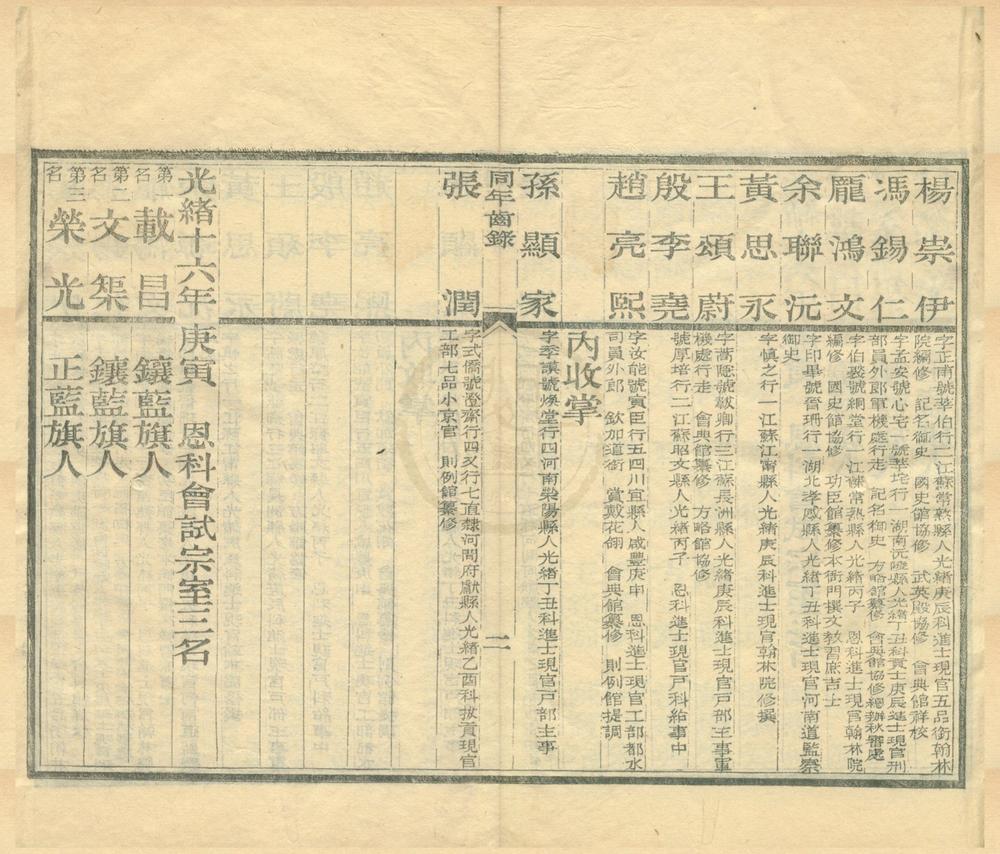 楊崇伊
字正甫號莘伯行二江蘇常熟縣人光緒庚辰科進士現官五品銜翰林
院編修　記名御史　國史館協修　武英殿協修　會典館詳校
馮錫仁
字孟安號心宅一號莘垞行一湖南沅陵縣人光緒丁丑科貢士庚辰進士現官刑
部員外郎軍機處行走　記名御史　方略館纂修　會典館協修總辦秋審處
龐鴻文
字伯裘號絅堂行一江蘇常熟縣人光緒丙子　恩科進士現官翰林院
編修　國史館協修　功臣館纂修本衙門撰文教習庶吉士
余聯沅
字印畢號晉珊行一湖北孝感縣人光緒丁丑科進士現官河南道監察
御史
黃思永
字慎之行一江蘇江甯縣人光緒庚辰科進士現官翰林院修撰
王頌蔚
字蒿隱號紱卿行三江蘇長洲縣人光緒庚辰科進士現官戶部主事軍
機處行走　會典館纂修　方略館協修
殷李堯
號厚培行二江蘇昭文縣人光緒丙子　恩科進士現官戶科給事中
趙亮熙
字汝能號寅臣行五四川宜賓縣人咸豐庚申　恩科進士現官工部都水
司員外郎　欽加道銜　賞戴花翎　會典館纂修　則例館提調
內收掌
孫顯家
字季謨號煥堂行四河南滎陽縣人光緒丁丑科進士現官戶部主事
同年齒錄
二
張潤
字式僑號澄齋行四又行七直隸河間府獻縣人光緒乙酉科拔貢現官
工部七品小京官　則例館纂修
光緒十六年庚寅　恩科會試宗室三名
第一名　載昌　鑲藍旗人
第二名　文榘　鑲藍旗人
第三名　榮光　正藍旗人